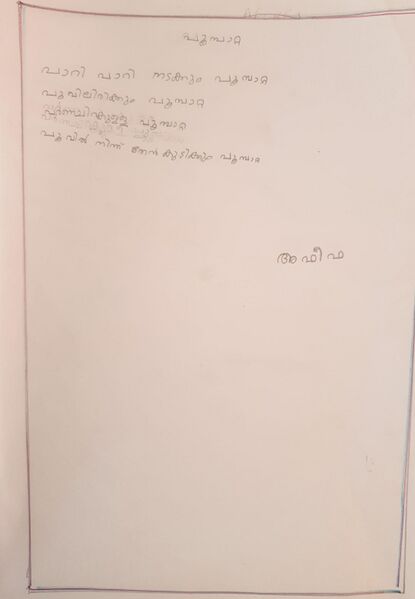 പൂമ്പാറ്റ
പാറി പാറി നടക്കും പൂമ്പാറ്റ
പൂവിലിരിക്കും പൂമ്പാറ്റ
വർണ്ണചിറകുള്ള പൂമ്പാറ്റ
പൂവിൽ നിന്ന് തേൻ കുടിക്കും പൂമ്പാറ്റ
അഫീഫ